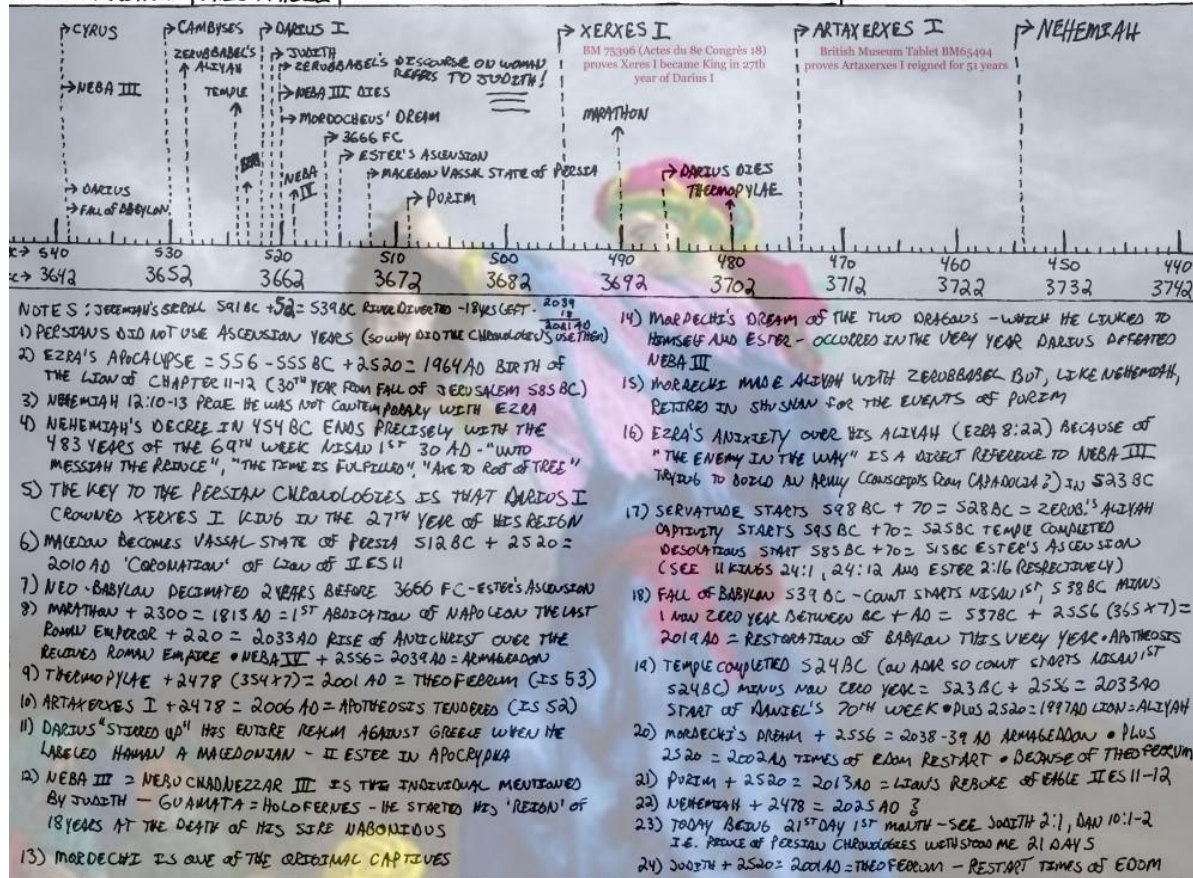 CYRUS
CAMBYSES
DARIUS I
XERXES I
ARTAXERXES I
NEHEMIAH
ZERUBBABEL'S
ALIYAH
JUDITH
ZERUBBABEL'S DISCOURSE ON WOMAN
REFERS TO JUDITH!
BM 75396 (Actes du 8e Congrès 18)
proves Xeres I became King in 27th
year of Darius I
British Museum Tablet BM65494
proves Artaxerxes I reigned for 51 years
NEBA III
TEMPLE
NEBA III DIES
MORDOCHEUS' DREAM
MARATHON
3666 FC
ESTER'S ASCENSION
MACEDON VASSAL STATE OF PERSIA
NEBA
IV
DARIUS DIES
THERMOPYLAE
DARIUS
FALL OF BABYLON
PURIM
540 530 520 510 500 490 480 470 460 450 440
3642 3652 3662 3672 3682 3692 3702 3712 3722 3732 3742
NOTES: JEREMIAH'S SCROLL 591 BC +52= 539 BC RIVER DIVERTED -18YRS LEFT- 2039
18
2021 AD
1) PERSIANS DID NOT USE ASCENSION YEARS (SO WHY DID THE CHRONOLOGERS USE THEM)
2) EZRA'S APOCALYPSE = 556 - 555 BC + 2520 = 1964 AD BIRTH OF
THE LION OF CHAPTER 11-12 (30TH YEAR FROM FALL OF JERUSALEM 585 BC)
3) NEHEMIAH 12:10-13 PROVE HE WAS NOT CONTEMPORARY WITH EZRA
4) NEHEMIAH'S DECREE IN 454 BC ENDS PRECISELY WITH THE
483 YEARS OF THE 69TH WEEK NISAN 1ST 30 AD - "UNTO
MESSIAH THE PRINCE", "THE TIME IS FULFILLED", "AXE TO ROOT OF TREE"
5) THE KEY TO THE PERSIAN CHRONOLOGIES IS THAT DARIUS I
CROWNED XERXES I KING IN THE 27TH YEAR OF HIS REIGN
6) MACEDON BECOMES VASSAL STATE OF PERSIA 512 BC + 2520 =
2010 AD 'CORONATION' OF LION OF II ES 11
7) NEO-BABYLON DECIMATED 2 YEARS BEFORE 3666 FC - ESTER'S ASCENSION
8) MARATHON + 2300 = 1813 AD = 1ST ABDICATION OF NAPOLEON THE LAST
ROMAN EMPEROR + 220 = 2033 AD RISE OF ANTICHRIST OVER THE
REVIVED ROMAN EMPIRE • NEBA IV + 2556 = 2039 AD = ARMAGEDDON
9) THERMOPYLAE + 2478 (354 X 7) = 2001 AD = THEOFERRUM (IS 53)
10) ARTAXERXES I + 2478 = 2006 AD = APOTHEOSIS TENDERED (IS 52)
11) DARIUS "STIRRED UP" HIS ENTIRE REALM AGAINST GREECE WHEN HE
LABELED HAMAN A MACEDONIAN - II ESTER IN APOCRYPHA
12) NEBA III = NEBUCHADNEZZAR III IS THE INDIVIDUAL MENTIONED
BY JUDITH - GUAMATA = HOLOFERNES - HE STARTED HIS 'REIGN' OF
18 YEARS AT THE DEATH OF HIS SIRE NABONIDUS
13) MORDECHI IS ONE OF THE ORIGINAL CAPTIVES
14) MORDECHI'S DREAM OF THE TWO DRAGONS - WHICH HE LINKED TO
HIMSELF AND ESTER - OCCURRED IN THE VERY YEAR DARIUS DEFEATED
NEBA III
15) MORDECHI MADE ALIYAH WITH ZERUBBABEL BUT, LIKE NEHEMIAH,
RETIRES IN SHUSHAN FOR THE EVENTS OF PURIM
16) EZRA'S ANIXIETY OVER HIS ALIYAH (EZRA 8:22) BECAUSE OF
"THE ENEMY IN THE WAY" IS A DIRECT REFERENCE TO NEBA III
TRYING TO BUILD AN ARMY (CONSCRIPTS FROM CAPADOCIA?) IN 523 BC
17) SERVATUDE STARTS 598 BC + 70 = 528 BC = ZERUB.'S ALIYAH
CAPTIVITY STARTS 595 BC +70= 525 BC TEMPLE COMPLETED
DESOLATIONS START 585 BC +70= 515 BC ESTER'S ASCENSION
(SEE II KINGS 24:1, 24:12 AND ESTER 2:16 RESPECTIVELY)
18) FALL OF BABYLON 539 BC - COUNT STARTS NISAN 1ST, 538 BC MINUS
1 NON ZERO YEAR BETWEEN BC + AD = 537 BC + 2556 (365 X 7) =
2019 AD = RESTORATION OF BABYLON THIS VERY YEAR • APOTHEOSIS
19) TEMPLE COMPLETED 524 BC (ON ADAR SO COUNT STARTS NISAN 1ST
524 BC) MINUS NON ZERO YEAR = 523 BC + 2556 = 2033 AD
START OF DANIEL'S 70TH WEEK • PLUS 2520 = 1997 AD LION = ALIYAH
20) MORDECHI'S DREAM + 2556 = 2038-39 AD ARMAGEDDON • PLUS
2520 = 2002 AD TIMES OF EDOM RESTART • BECAUSE OF THEOFERRUM
21) PURIM + 2520 = 2013 AD = LION'S REBUKE OF EAGLE II ES 11-12
22) NEHEMIAH + 2478 = 2025 AD ?
23) TODAY BEING 21ST DAY 1ST MONTH - SEE JUDITH 2:1, DAN 10:1-2
I.E. PRINCE OF PERSIAN CHRONOLOGIES WITHSTOOD ME 21 DAYS
24) JUDITH + 2520 = 2001 AD = THEOFERRUM - RESTART TIMES OF EDOM